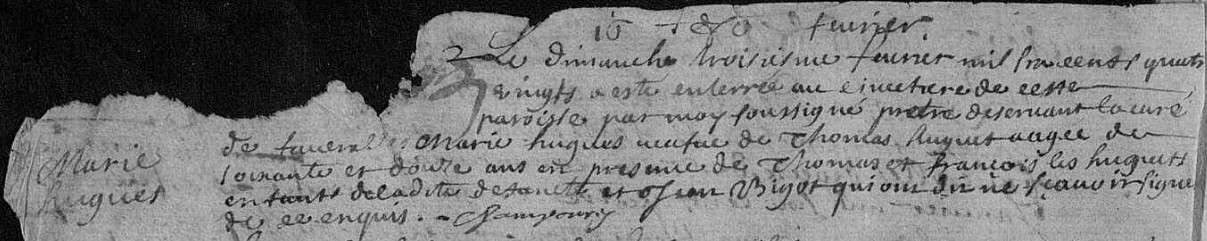 fevrier
Le dimanche troisiesme fevrier mil six cents quatre
vingts a esté enterrée au cimetiere de ceste
paroisse par moy soussigné pretre deservant la curé
de Marie hugues veufue de Thomas huguet aagee de
Marie
soixante et douze ans en presence de Thomas et francois les huguets
hugues
enfants de ladite defuncte et Jean Bigot qui ont dit ne sçavoir signer
de ce enquis.